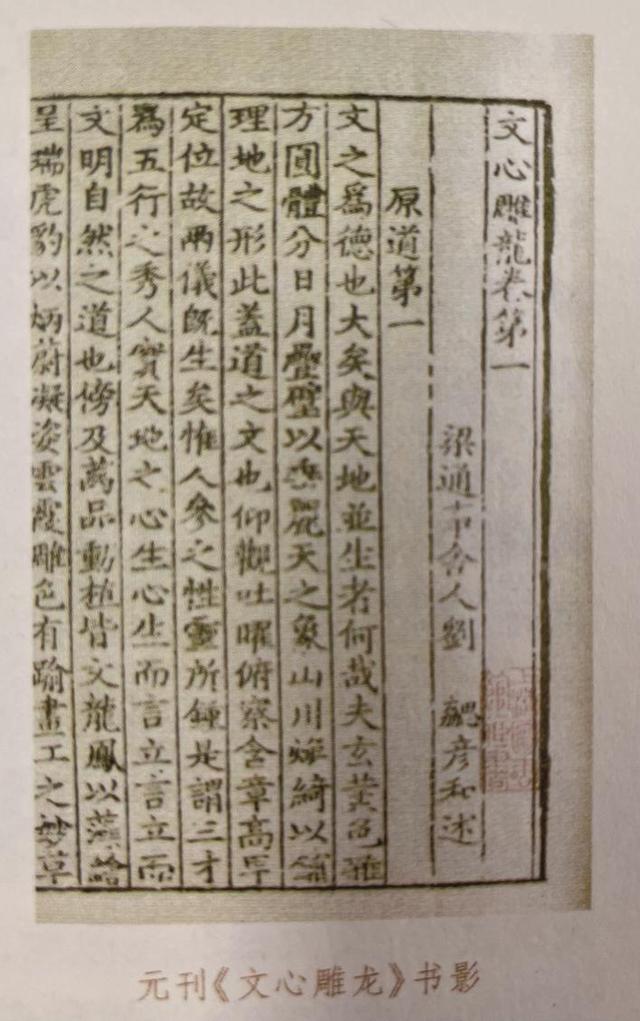 文心雕龍卷第一
梁通事舍人劉　勰彥和述
原道第一
文之爲德也大矣與天地並生者何哉夫玄黃色雜
方圓體分日月疊璧以垂麗天之象山川煥綺以鋪
理地之形此蓋道之文也仰觀吐曜俯察含章高卑
定位故兩儀旣生矣惟人參之性靈所鍾是謂三才
爲五行之秀人實天地之心生心生而言立言立而
文明自然之道也傍及萬品動植皆文龍鳳以藻繪
呈瑞虎豹以炳蔚凝姿雲霞雕色有踰畫工之妙草
元刊《文心雕龙》书影